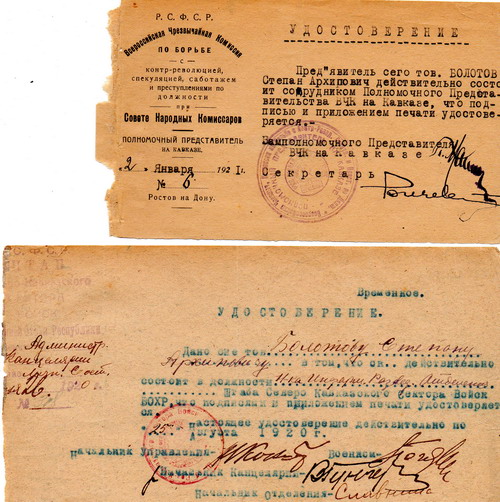 Р. С. Ф. С. Р.
Всероссийская Чрезвычайная Комиссия
ПО БОРЬБЕ
— с —
КОНТР-РЕВОЛЮЦИЕЙ,
СПЕКУЛЯЦИЕЙ, САБОТАЖЕМ
и ПРЕСТУПЛЕНИЯМИ ПО
ДОЛЖНОСТИ
при
Совете Народных Комиссаров
ПОЛНОМОЧНЫЙ ПРЕДСТАВИТЕЛЬ
НА КАВКАЗЕ.
2 Января 1921 г.
№ 6
Ростов на Дону.
УДОСТОВЕРЕНИЕ
Пред"явитель сего тов. БОЛОТОВ
Степан Архипович действительно состо
ит сотрудником Полномочного Предста-
вительства ВЧК на Кавказе, что под-
писью и приложением печати удостове-
ряется.-
Замполномочного Представителя
ВЧК на Кавказе
Секретарь
Временное.
УДОСТОВЕРЕНИЕ.
Дано сие тов. Болотову Степану
Архиповичу в том, что он действительно
состоит в должности
Штаба Северо Кавказского Сектора Войск
ВОХР, что подписями и приложением печати удостоверяет
ся.
Настоящее удостоверение действительно по
25 Августа 1920 г.
Начальник Управления-
Военком-
Начальник Канцелярии-
Начальник отделения-